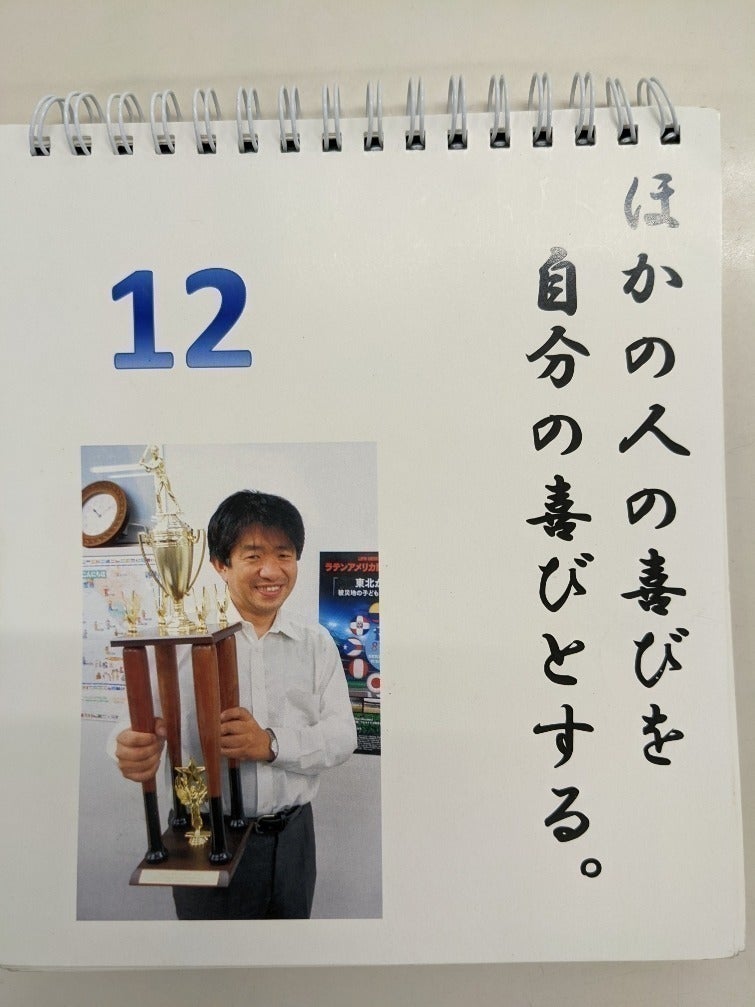 ほかの人の喜びを
自分の喜びとする。
12
ラテンアメリカ
東北
被災地の子ども